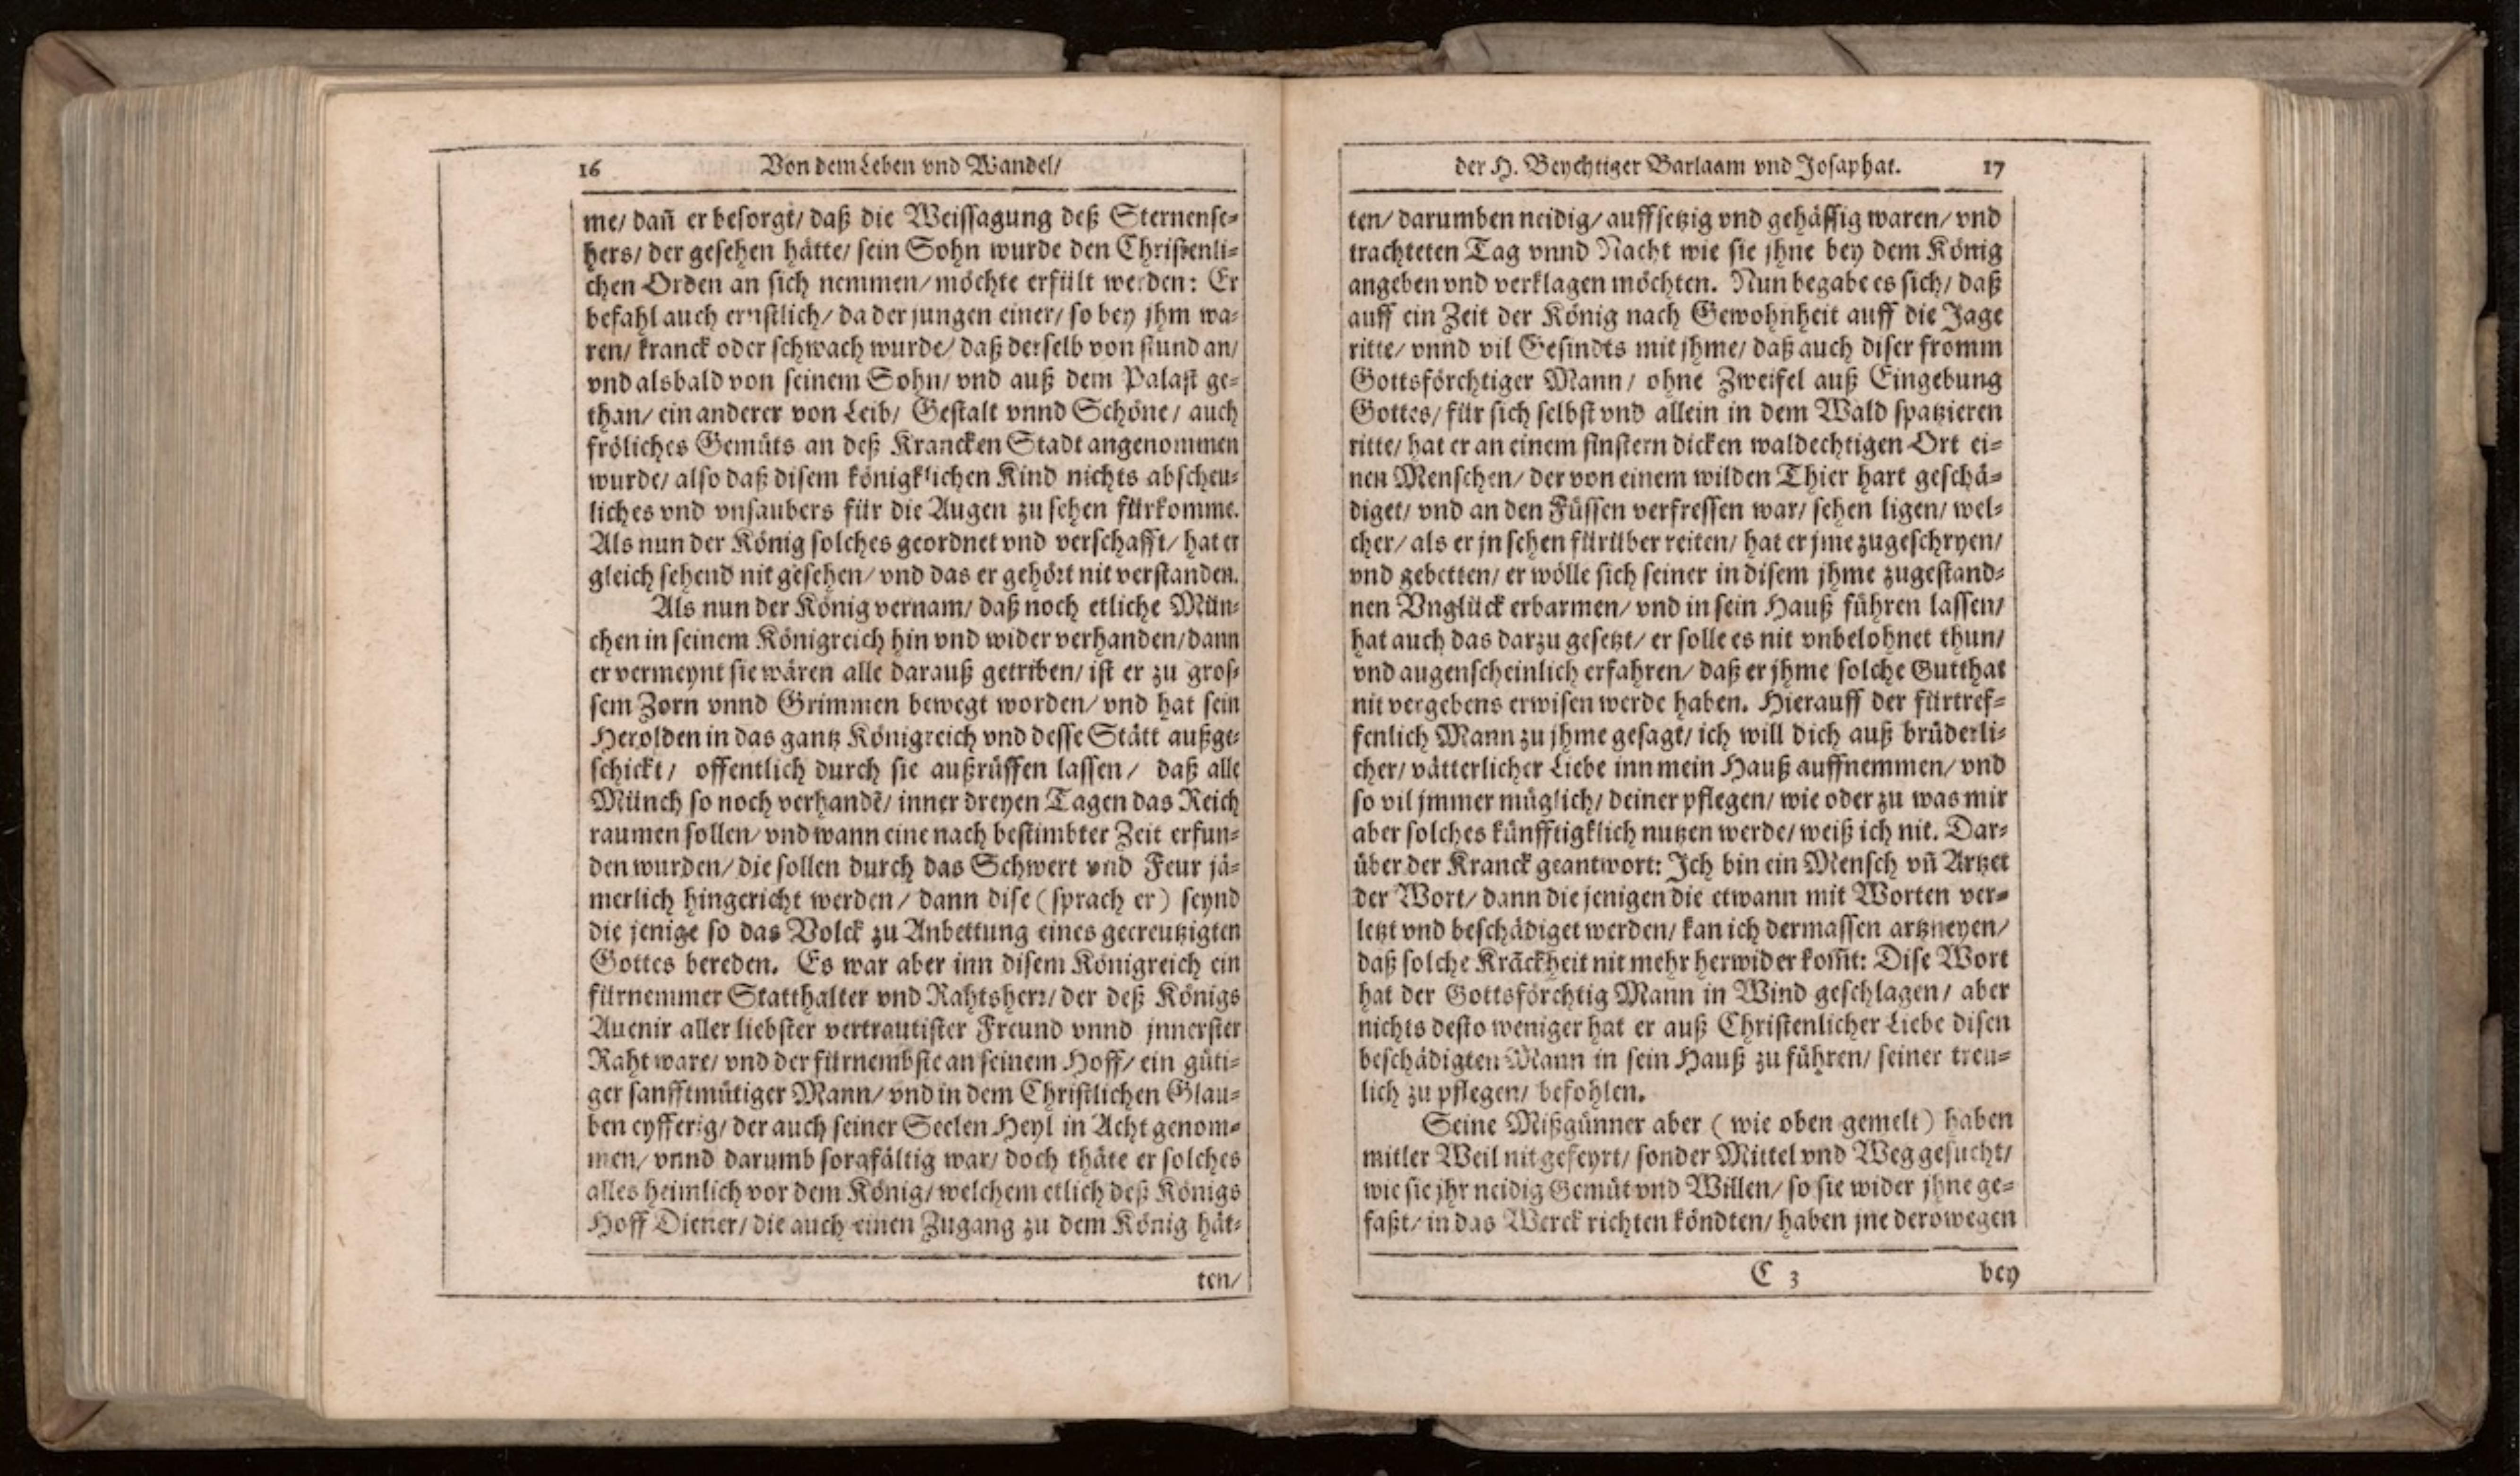 16 Von dem Leben vnd Wandel/
me/ dañ er besorgt/ daß die Weissagung deß Sternense-
hers/ der gesehen hätte/ sein Sohn wurde den Christenli-
chen Orden an sich nemmen/ möchte erfült werden: Er
befahl auch ernstlich/ da der jungen einer/ so bey jhm wa-
ren/ kranck oder schwach wurde/ daß derselb von stund an/
vnd alsbald von seinem Sohn/ vnd auß dem Palast ge-
than/ ein anderer von Leib/ Gestalt vnnd Schöne/ auch
fröliches Gemüts an deß Krancken Stadt angenommen
wurde/ also daß disem königklichen Kind nichts abscheu-
liches vnd vnsaubers für die Augen zu sehen fürkomme.
Als nun der König solches geordnet vnd verschafft/ hat er
gleich sehend nit gesehen/ vnd das er gehört nit verstanden.
Als nun der König vernam/ daß noch etliche Mün-
chen in seinem Königreich hin vnd wider verhanden/ dann
er vermeynt sie wären alle darauß getriben/ ist er zu gros-
sem Zorn vnnd Grimmen bewegt worden/ vnd hat sein
Herolden in das gantz Königreich vnd desse Stätt außge-
schickt/ offentlich durch sie außrüffen lassen/ daß alle
Münch so noch verhandẽ/ inner dreyen Tagen das Reich
raumen sollen/ vnd wann eine nach bestimbter Zeit erfun-
den wurden/ die sollen durch das Schwert vnd Feur jä-
merlich hingericht werden/ dann dise (sprach er) seynd
die jenige so das Volck zu Anbettung eines gecreutzigten
Gottes bereden. Es war aber inn disem Königreich ein
fürnemmer Statthalter vnd Rahtsherr/ der deß Königs
Auenir aller liebster vertrautister Freund vnnd jnnerster
Raht ware/ vnd der fürnembste an seinem Hoff/ ein güti-
ger sanfftmütiger Mann/ vnd in dem Christlichen Glau-
ben eyfferig/ der auch seiner Seelen Heyl in Acht genom-
men/ vnnd darumb sorgfältig war/ doch thäte er solches
alles heimlich vor dem König/ welchem etlich deß Königs
Hoff Diener/ die auch einen Zugang zu dem König hät-
ten/
der H. Beychtiger Barlaam vnd Josaphat. 17
ten/ darumben neidig/ auffsetzig vnd gehässig waren/ vnd
trachteten Tag vnnd Nacht wie sie jhne bey dem König
angeben vnd verklagen möchten. Nun begabe es sich/ daß
auff ein Zeit der König nach Gewohnheit auff die Jage
ritte/ vnnd vil Gesindts mit jhme/ daß auch diser fromm
Gottsförchtiger Mann/ ohne Zweifel auß Eingebung
Gottes/ für sich selbst vnd allein in dem Wald spatzieren
ritte/ hat er an einem finstern dicken waldechtigen Ort ei-
nen Menschen/ der von einem wilden Thier hart geschä-
diget/ vnd an den Füssen verfressen war/ sehen ligen/ wel-
cher/ als er jn sehen fürüber reiten/ hat er jme zugeschryen/
vnd gebetten/ er wölle sich seiner in disem jhme zugestand-
nen Vnglück erbarmen/ vnd in sein Hauß führen lassen/
hat auch das darzu gesetzt/ er solle es nit vnbelohnet thun/
vnd augenscheinlich erfahren/ daß er jhme solche Gutthat
nit vergebens erwisen werde haben. Hierauff der fürtref-
fenlich Mann zu jhme gesagt/ ich will dich auß brüderli-
cher/ vätterlicher Liebe inn mein Hauß auffnemmen/ vnd
so vil jmmer müglich/ deiner pflegen/ wie oder zu was mir
aber solches künfftigklich nutzen werde/ weiß ich nit. Dar-
über der Kranck geantwort: Ich bin ein Mensch vñ Artzet
der Wort/ dann die jenigen die etwann mit Worten ver-
letzt vnd beschädiget werden/ kan ich dermassen artzneyen/
daß solche Krãckheit nit mehr herwider kom̃t: Dise Wort
hat der Gottsförchtig Mann in Wind geschlagen/ aber
nichts desto weniger hat er auß Christenlicher Liebe disen
beschädigten Mann in sein Hauß zu führen/ seiner treu-
lich zu pflegen/ befohlen.
Seine Mißgünner aber (wie oben gemelt) haben
mitler Weil nit gefeyrt/ sonder Mittel vnd Weg gesucht/
wie sie jhr neidig Gemüt vnd Willen/ so sie wider jhne ge-
faßt/ in das Werck richten köndten/ haben jne derowegen
C 3 bey